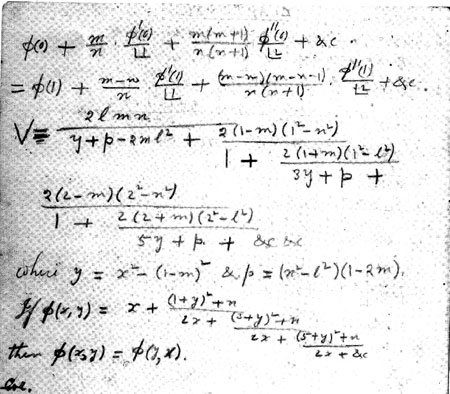 φ(0) + m/n · φ'(0)/⌊1 + m(m+1)/n(n+1) φ''(0)/⌊2 + &c.
= φ(1) + (m-n)/n φ'(1)/⌊1 + (m-n)(m-n-1)/n(n+1) · φ''(1)/⌊2 + &c.
V = 2lmn/y + p - 2ml² + 2(1-m)(1²-n²)/1 + 2(1+m)(1²-l²)/3y + p +
2(2-m)(2²-n²)/1 + 2(2+m)(2²-l²)/5y + p + &c &c
where y = x² - (1-m)² & p = (n²-l²)(1-2m).
If φ(x,y) = x + (1+y)²+n/2x + (3+y)²+n/2x + (5+y)²+n/2x + &c
then φ(x,y) = φ(y,x).